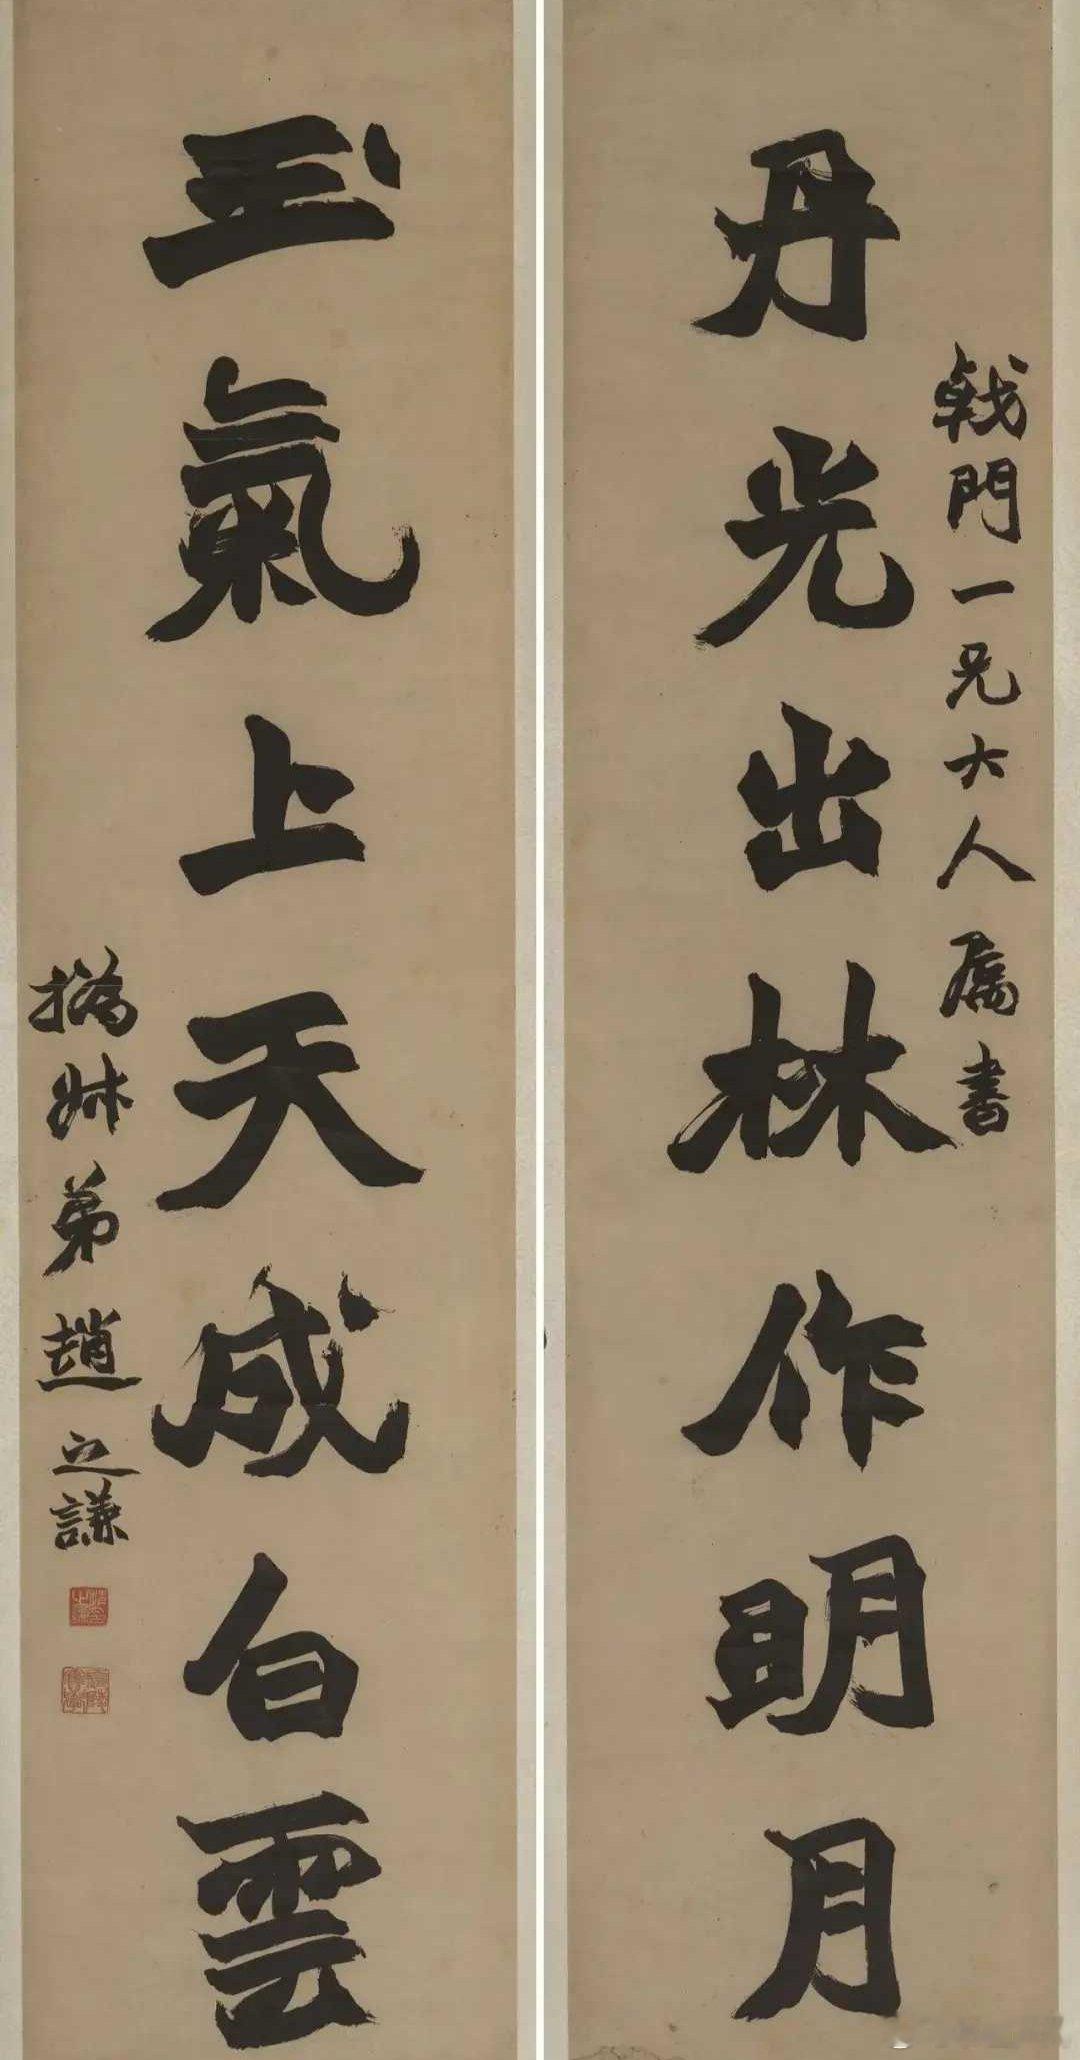 戟門一兄大人屬書
丹光出林作明月
玉氣上天成白雲
撝叔弟趙之謙